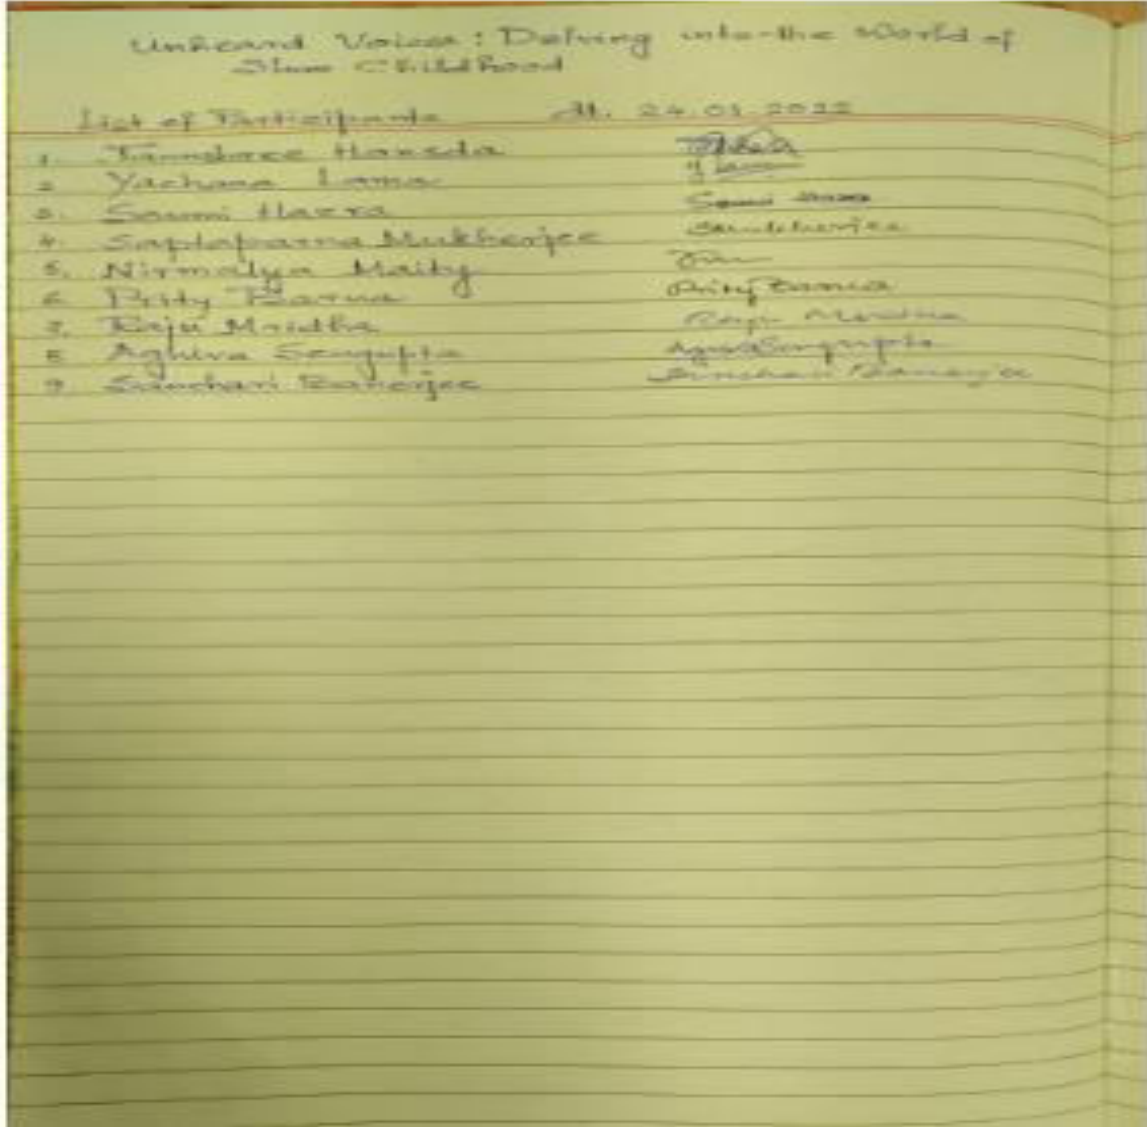 Unheard Voices : Delving into the World of
Slum Childhood
List of Participants dt. 24.01.2022
1. Hansda
2. Yachana Lama Y Lama
3. Soumi Hazra Soumi Hazra
4. Saptaparna Mukherjee SMukherjee
5. Nirmalya Maity
6. Prity Barua Prity Barua
7. Raju Mridha Raju Mridha
8. Agniva Sengupta Agniva Sengupta
9. Sanchari Banerjee Sanchari Banerjee